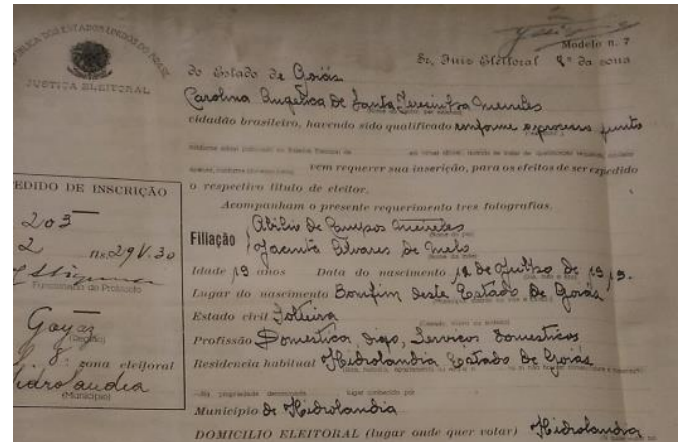 REPUBLICA DOS ESTADOS UNIDOS DO BRASIL
JUSTIÇA ELEITORAL
Modelo n. 7
Sr. Juiz Eleitoral 8ª da zona
do Estado de Goiás
Carolina Angelica de Santa Terezinha Meireles
cidadão brasileiro, havendo sido qualificado conforme expresso junto
vem requerer sua inscrição, para os efeitos de ser expedido
o respectivo titulo de eleitor.
Acompanham o presente requerimento tres fotografias.
Filiação Abilio de Campos Meireles
Jacinta Alvares de Melo
Idade 19 anos Data do nascimento 12 de Julho de 1919.
Lugar do nascimento Bomfim deste Estado de Goiás
Estado civil Solteira
Profissão Domestica, digo, Serviços domesticos
Residencia habitual Hidrolandia Estado de Goiás
Municipio de Hidrolandia
DOMICILIO ELEITORAL (lugar onde quer votar) Hidrolandia
PEDIDO DE INSCRIÇÃO
203
2 fls. 29 V. 30
Funcionario do Protocolo
Goyaz
(Região)
8ª zona eleitoral
Hidrolandia
(Municipio)